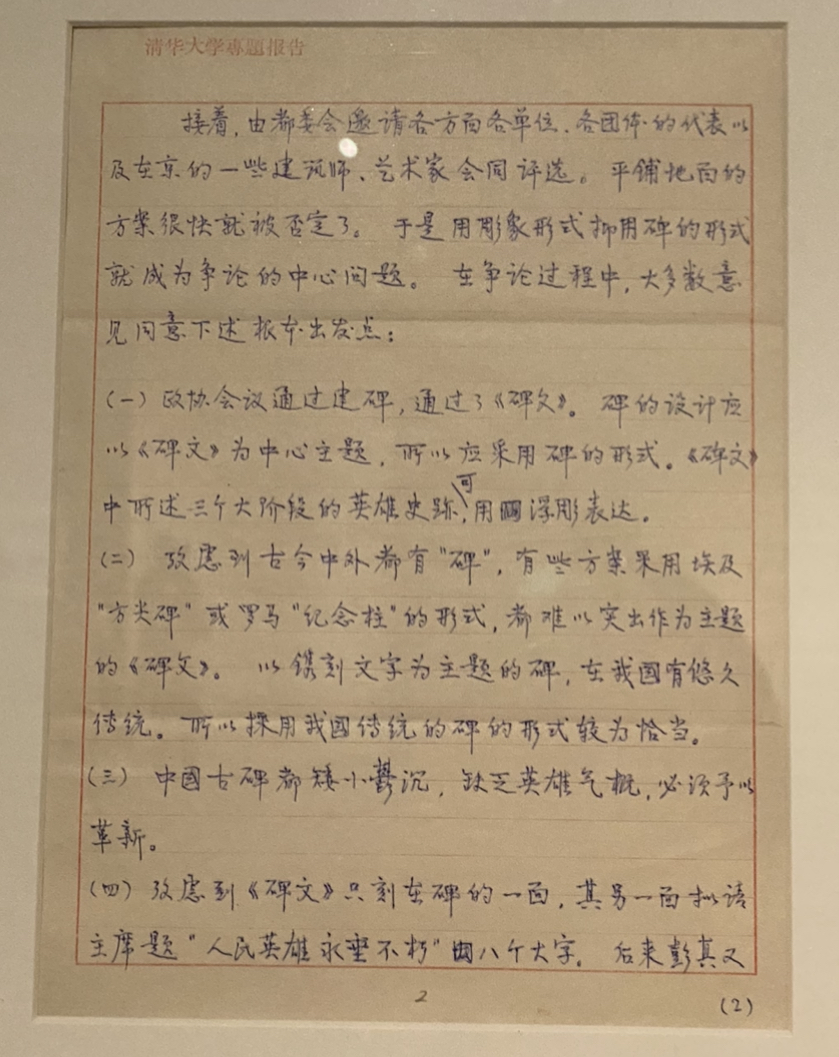 清华大学專題报告
接着，由都委会邀请各方面各单位、各团体的代表以
及在京的一些建筑师、艺术家会同评选。平铺地面的
方案很快就被否定了。于是用彫象形式抑用碑的形式
就成为争论的中心问题。在争论过程中，大多数意
见同意下述根本出发点：
(一) 政协会议通过建碑，通过了《碑文》。碑的设计应
以《碑文》为中心主题，所以应采用碑的形式。《碑文》
可
中所述三个大阶段的英雄史跡，用浮彫表达。
(二) 攷虑到古今中外都有"碑"，有些方案采用埃及
"方尖碑"或罗马"纪念柱"的形式，都难以突出作为主题
的《碑文》。以镌刻文字为主题的碑，在我國有悠久
传统。所以採用我國传统的碑的形式较为恰当。
(三) 中國古碑都矮小鬱沉，缺乏英雄气概，必须予以
革新。
(四) 攷虑到《碑文》只刻在碑的一面，其另一面拟请
主席题"人民英雄永垂不朽"八个大字。后来彭真又
2
(2)